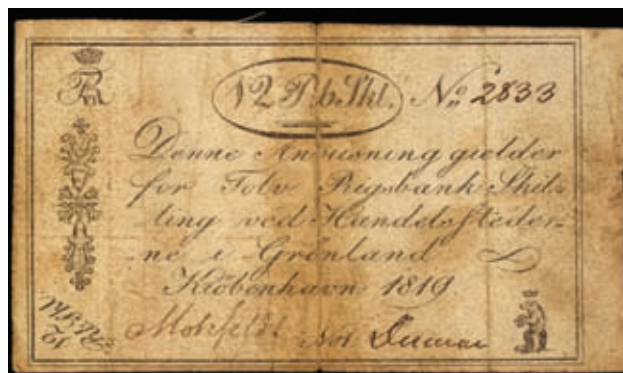 12 R.b.Skl. No 2833
Denne Anviisning gielder
for Tolv Rigsbank Skil-
ling ved Handelsstæder-
ne i Grönland
Kiöbenhavn 1819
12 R.b.Skl.